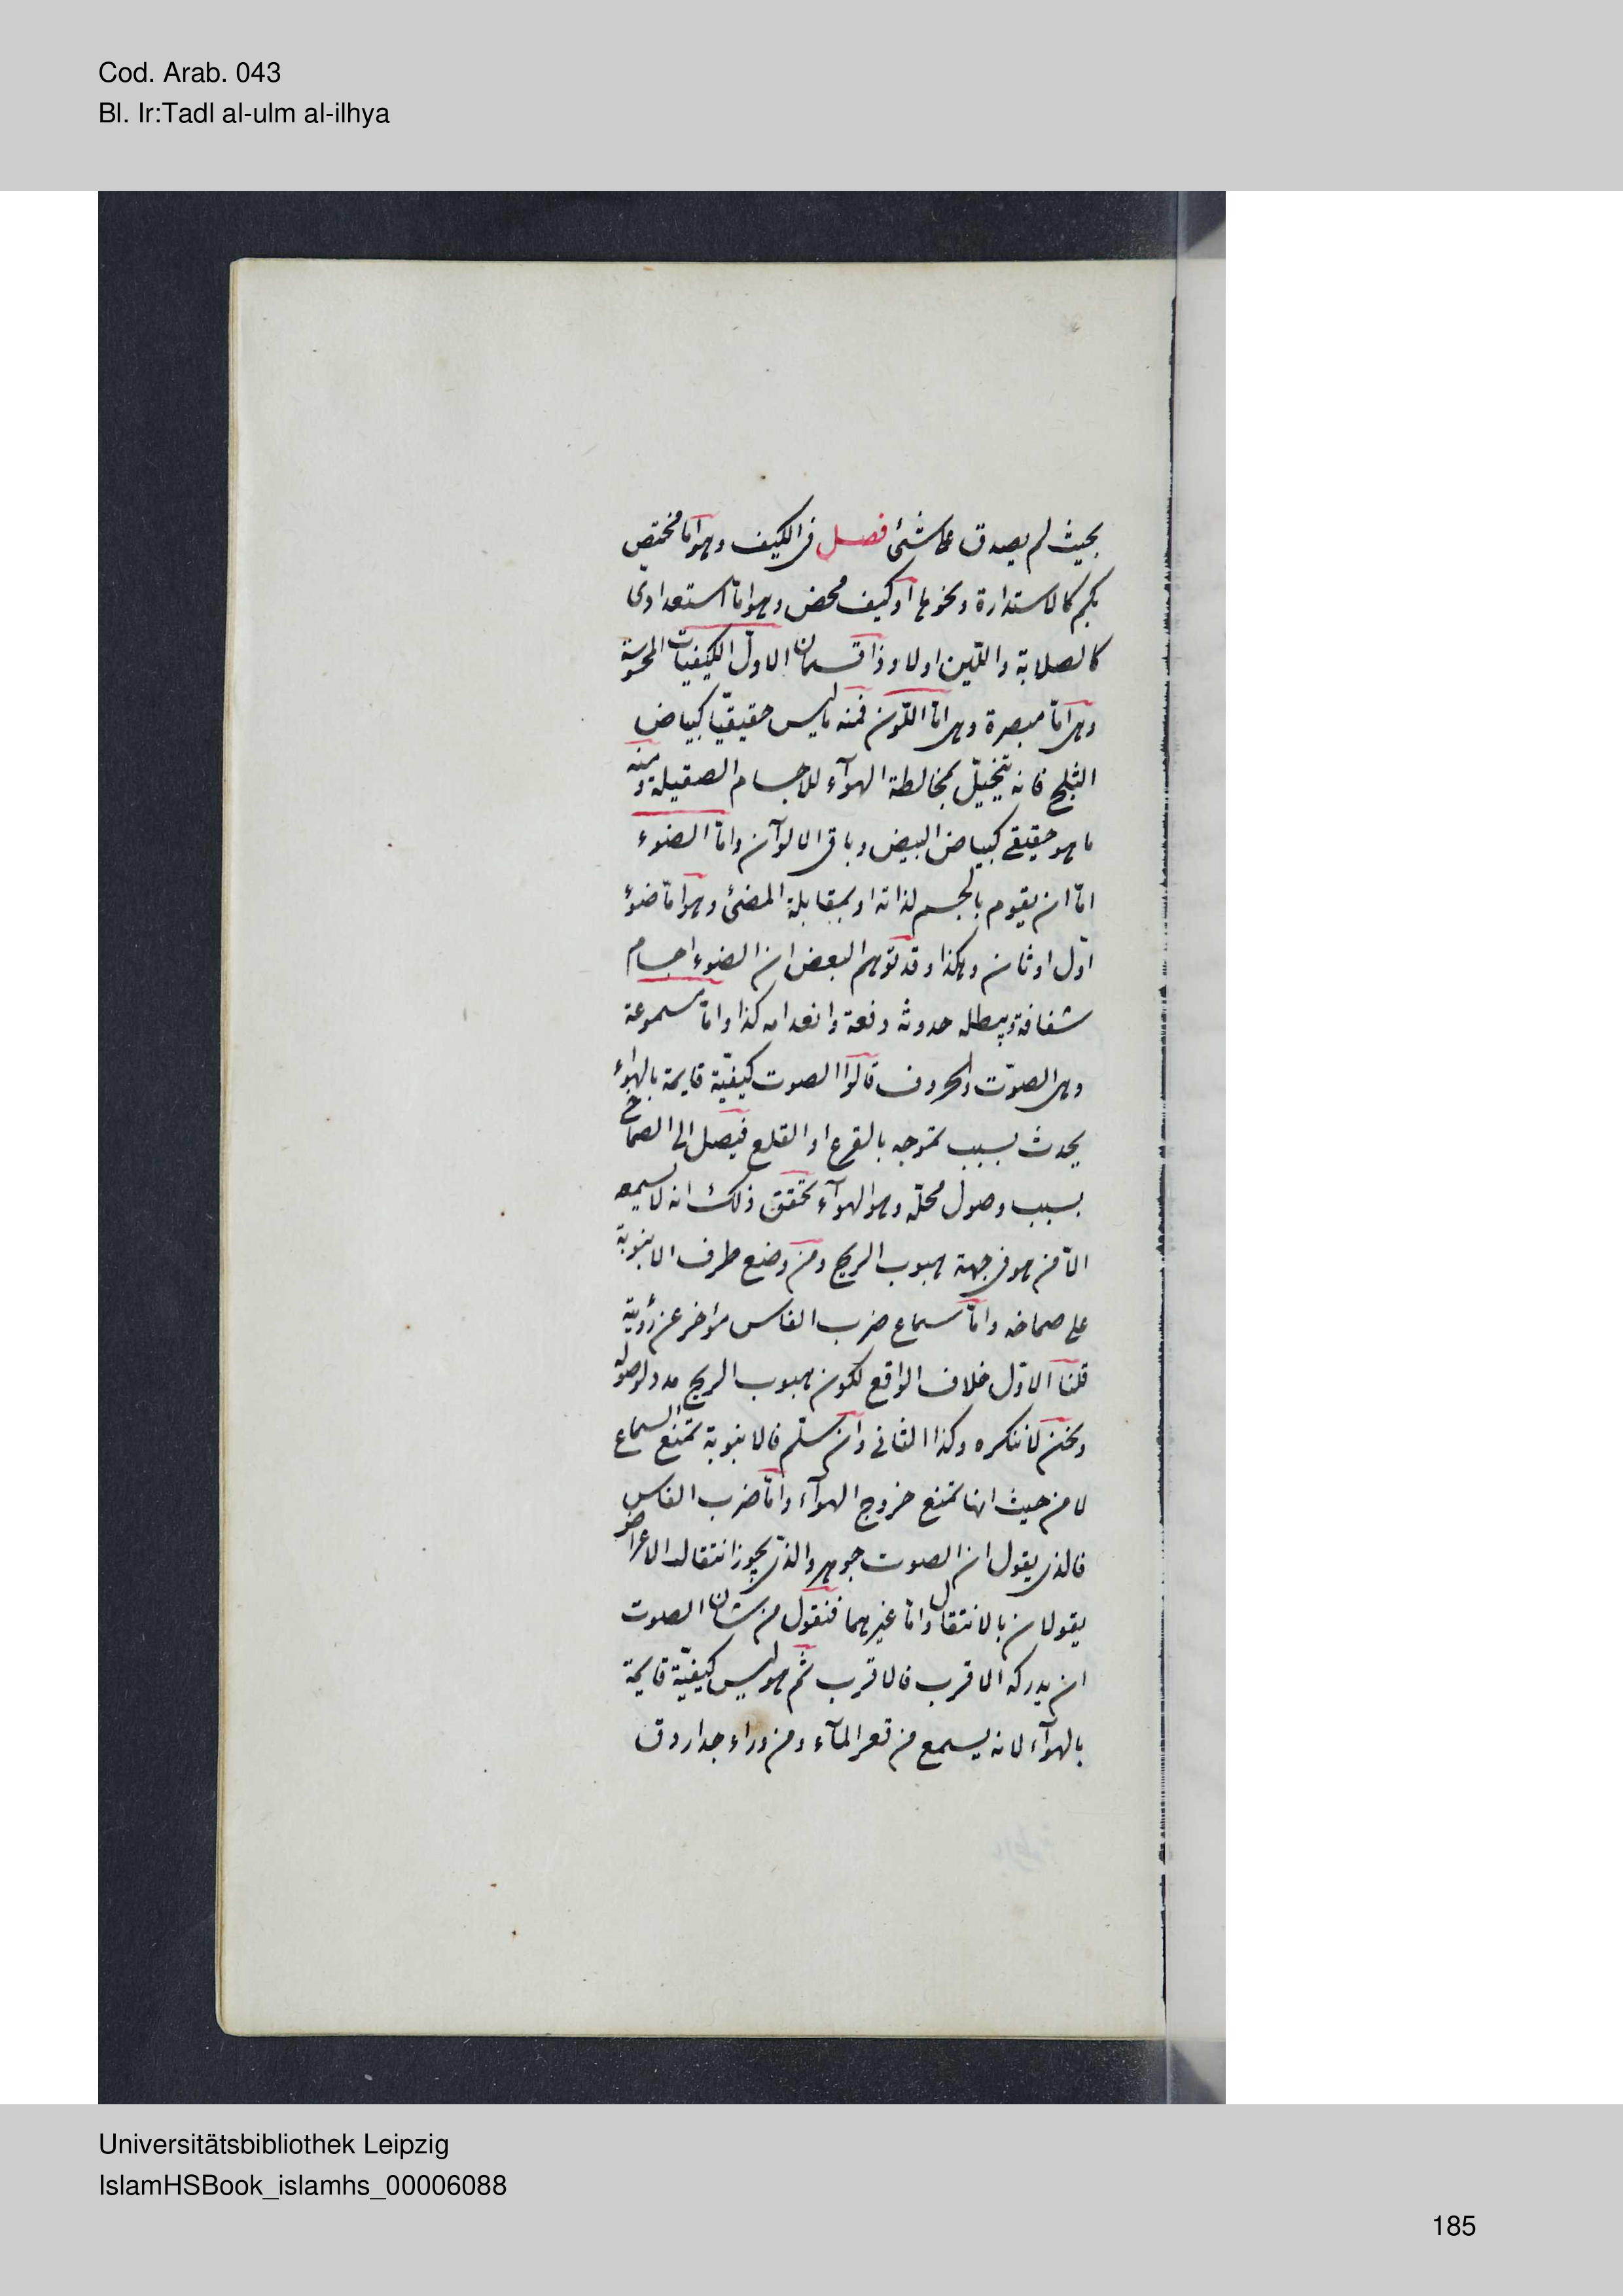 Cod. Arab. 043
Bl. Ir:Tadl al-ulm al-ilhya
بحيث لم يصدق على شئ فصل فى الكيف وهو اما مختص
بكم كالاستدارة ونحوها او كيف محض وهو اما استعدادى
كالصلابة واللين اولا وذا قسمان الاول الكيفيات المحسوسة
وهى اما مبصرة وهى اما اللون فمنه ما ليس حقيقيا كبياض
الثلج فانه يتخيل بمخالطة الهوآء للاجسام الصقيلة ومنه
ما هو حقيقى كبياض البيض وباقى الالوان واما الضوء
اما ان يقوم بالجسم لذاته او بمقابلة المضئ وهو اما ضوء
اول او ثان وهكذا وقد توهم البعض ان الضوء اجسام
شفافة ويبطله حدوثه دفعة وانعدامه كذا واما مسموعة
وهى الصوت والحروف قالوا الصوت كيفية قايمة بالهواء
يحدث بسبب تموجه بالقرع او القلع فيصل الى الصماخ
بسبب وصول محله وهو الهوآء تحقق ذلك انه لا يسمعه
الا من هو فى جهة هبوب الريح ومن وضع طرف الانبوبة
على صماخه واما سماع ضرب الفاس مؤخر عن رؤية
قلنا الاول خلاف الواقع لكون هبوب الريح مدد لوصوله
ونحن لا ننكره وكذا الثانى وان سلم فالانبوبة تمنع السماع
لا من حيث انها تمنع خروج الهوآء واما ضرب الفاس
فالذى يقول ان الصوت جوهر والذى يجوز انتقال الاعراض
يقولان بالانتقال واما غيرهما فنقول من شان الصوت
ان يدركه الاقرب فالاقرب ثم هو ليس كيفية قايمة
بالهوآء لانه يسمع من قعر المآء ومن وراء جدار دق
Universitätsbibliothek Leipzig
IslamHSBook_islamhs_00006088
185